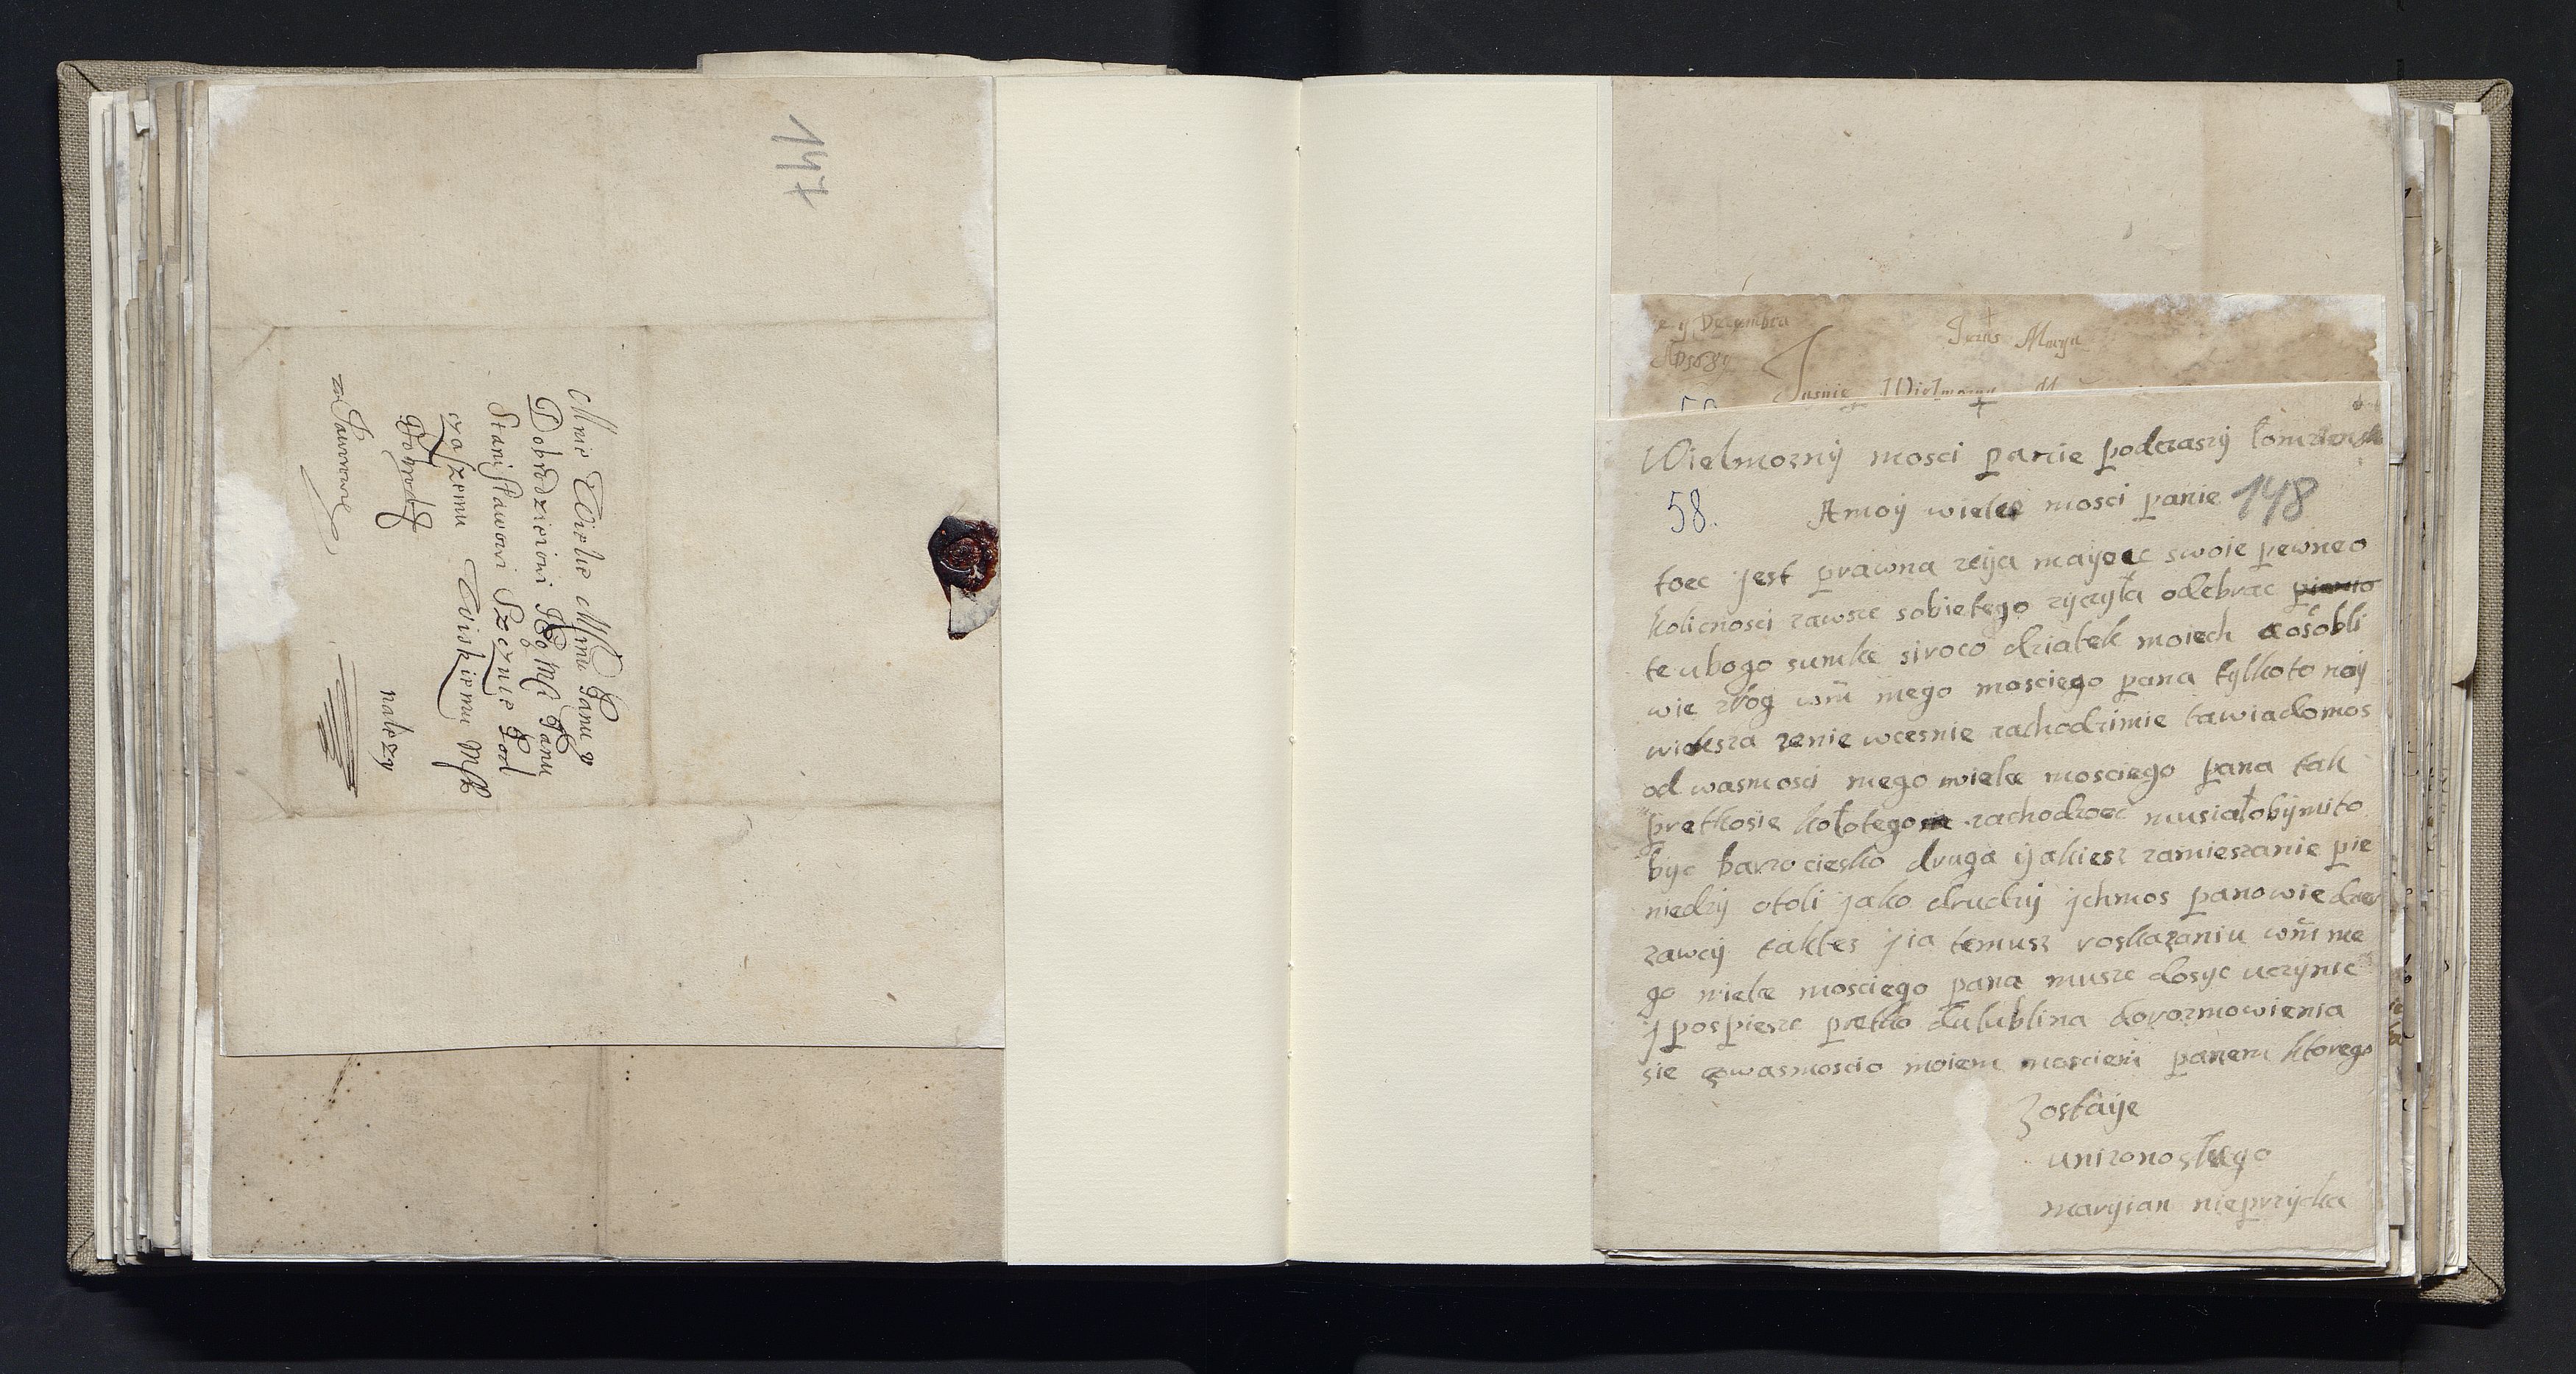 147
Mnie Wielce Mmu Panu y
Dobrodzieiowi Je Mci Panu
Stanisławowi Szczuce Pod
czaszemu Wiskiemu Msk
należy
58.
e 9 Decembra
AD 1689
Jezus Marya
Jasnie Wielmozny M
Wielmozny mosci panie podczaszy
Amoy wielce mosci panie 148
toec jest prawna rzyja mayoec swoie pewneo
kolicnosci zawsze sobietego zyczyła odebrac
te ubogo sumke siroco dziatek moiech aosobli
wie zrog wm mego mosciego pana tylko to nay
wieksza zenie wcesnie zachodzimie tawiadomos
od wasmosci mego wielce mosciego pana tak
pretkosie kołotego zachodzoec musiałobymito
byc barzo ciesko druga yakiesz zamieszanie pie
niedzy otoli jako drudzy jchmos panowie dzer
zawcy taktes jia temusz roskazaniu wm me
go wielce mosciego pana musze dosyc uczynic
j pospiesze pretko dulublina dorozmowienia
sie zowasmoscio moiem moscieni panem ktorego
zostaije
unizono sługo
maryian nieprzycka